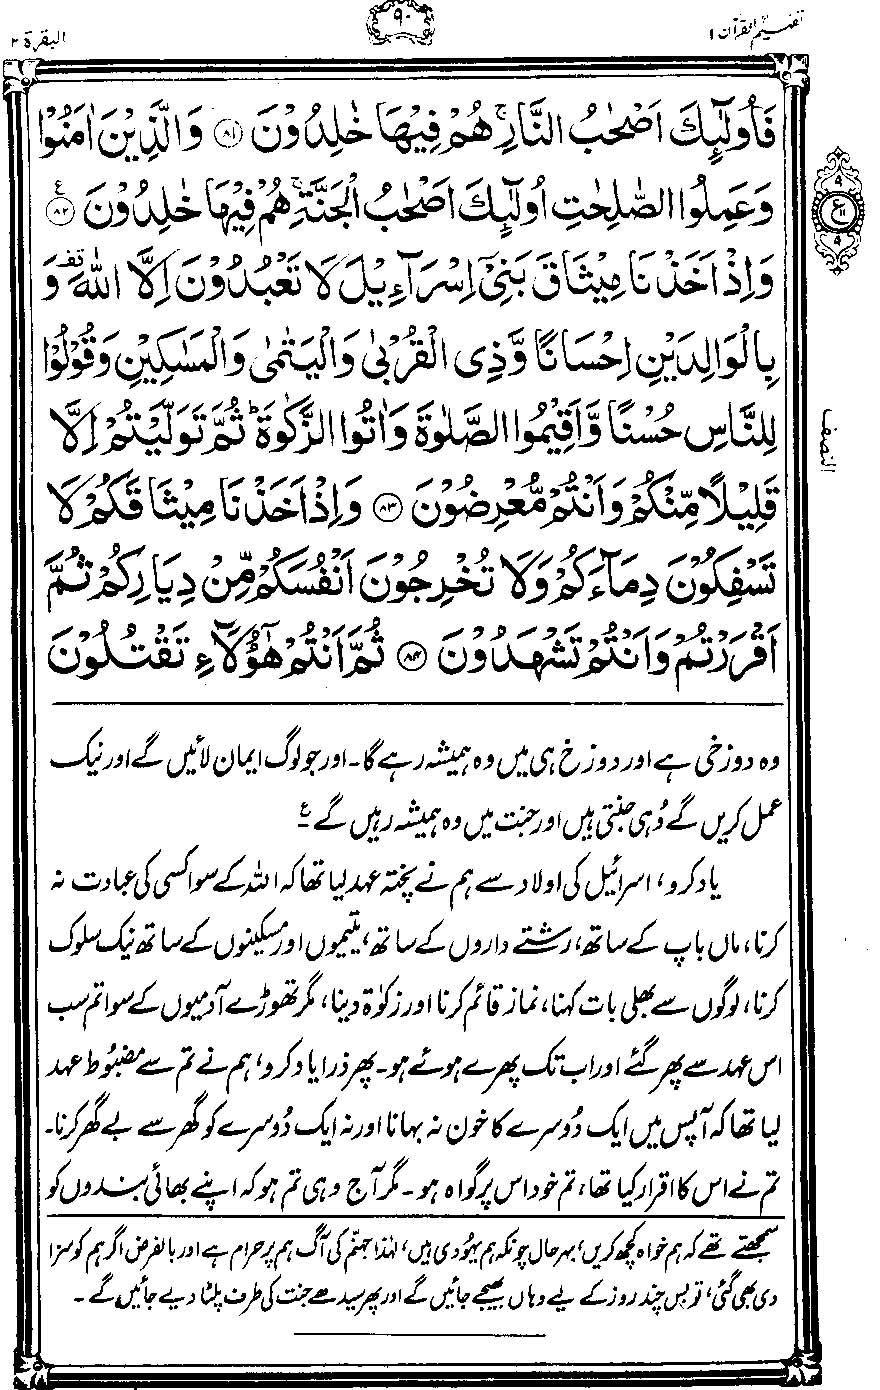 تفہیم القرآن ۱
۹۰
البقرۃ ۲
فَاُولٰٓئِكَ اَصْحٰبُ النَّارِ ۚ هُمْ فِيْهَا خٰلِدُوْنَ ﴿۸۱﴾ وَالَّذِيْنَ اٰمَنُوْا
وَعَمِلُوا الصّٰلِحٰتِ اُولٰٓئِكَ اَصْحٰبُ الْجَنَّةِ ۚ هُمْ فِيْهَا خٰلِدُوْنَ ﴿۸۲﴾ ع
وَاِذْ اَخَذْنَا مِيْثَاقَ بَنِيْٓ اِسْرَآءِيْلَ لَا تَعْبُدُوْنَ اِلَّا اللّٰهَ قف وَ
بِالْوَالِدَيْنِ اِحْسَانًا وَّذِي الْقُرْبٰى وَالْيَتٰمٰى وَالْمَسٰكِيْنِ وَقُوْلُوْا
لِلنَّاسِ حُسْنًا وَّاَقِيْمُوا الصَّلٰوةَ وَاٰتُوا الزَّكٰوةَ ؕ ثُمَّ تَوَلَّيْتُمْ اِلَّا
قَلِيْلًا مِّنْكُمْ وَاَنْتُمْ مُّعْرِضُوْنَ ﴿۸۳﴾ وَاِذْ اَخَذْنَا مِيْثَاقَكُمْ لَا
تَسْفِكُوْنَ دِمَآءَكُمْ وَلَا تُخْرِجُوْنَ اَنْفُسَكُمْ مِّنْ دِيَارِكُمْ ثُمَّ
اَقْرَرْتُمْ وَاَنْتُمْ تَشْهَدُوْنَ ﴿۸۴﴾ ثُمَّ اَنْتُمْ هٰٓؤُلَآءِ تَقْتُلُوْنَ
۹
ع ۱۱
۹
النصف
وہ دوزخی ہے اور دوزخ ہی میں وہ ہمیشہ رہے گا۔ اور جو لوگ ایمان لائیں گے اور نیک
عمل کریں گے وُہی جنتی ہیں اور جنت میں وہ ہمیشہ رہیں گے ۔ع
یاد کرو، اسرائیل کی اولاد سے ہم نے پختہ عہد لیا تھا کہ اللہ کے سوا کسی کی عبادت نہ
کرنا، ماں باپ کے ساتھ، رشتے داروں کے ساتھ، یتیموں اور مسکینوں کے ساتھ نیک سلوک
کرنا، لوگوں سے بھلی بات کہنا، نماز قائم کرنا اور زکوٰۃ دینا، مگر تھوڑے آدمیوں کے سوا تم سب
اس عہد سے پھر گئے اور اب تک پھرے ہوئے ہو۔ پھر ذرا یاد کرو، ہم نے تم سے مضبُوط عہد
لیا تھا کہ آپس میں ایک دُوسرے کا خون نہ بہانا اور نہ ایک دُوسرے کو گھر سے بے گھر کرنا۔
تم نے اس کا اقرار کیا تھا، تم خود اس پر گواہ ہو ۔ مگر آج وہی تم ہو کہ اپنے بھائی بندوں کو
سمجھتے تھے کہ ہم خواہ کچھ کریں، بہر حال چونکہ ہم یہُودی ہیں، لہٰذا جہنّم کی آگ ہم پر حرام ہے اور بالفرض اگر ہم کو سزا
دی بھی گئی، تو بس چند روز کے لیے وہاں بھیجے جائیں گے اور پھر سیدھے جنت کی طرف پلٹا دیے جائیں گے ۔